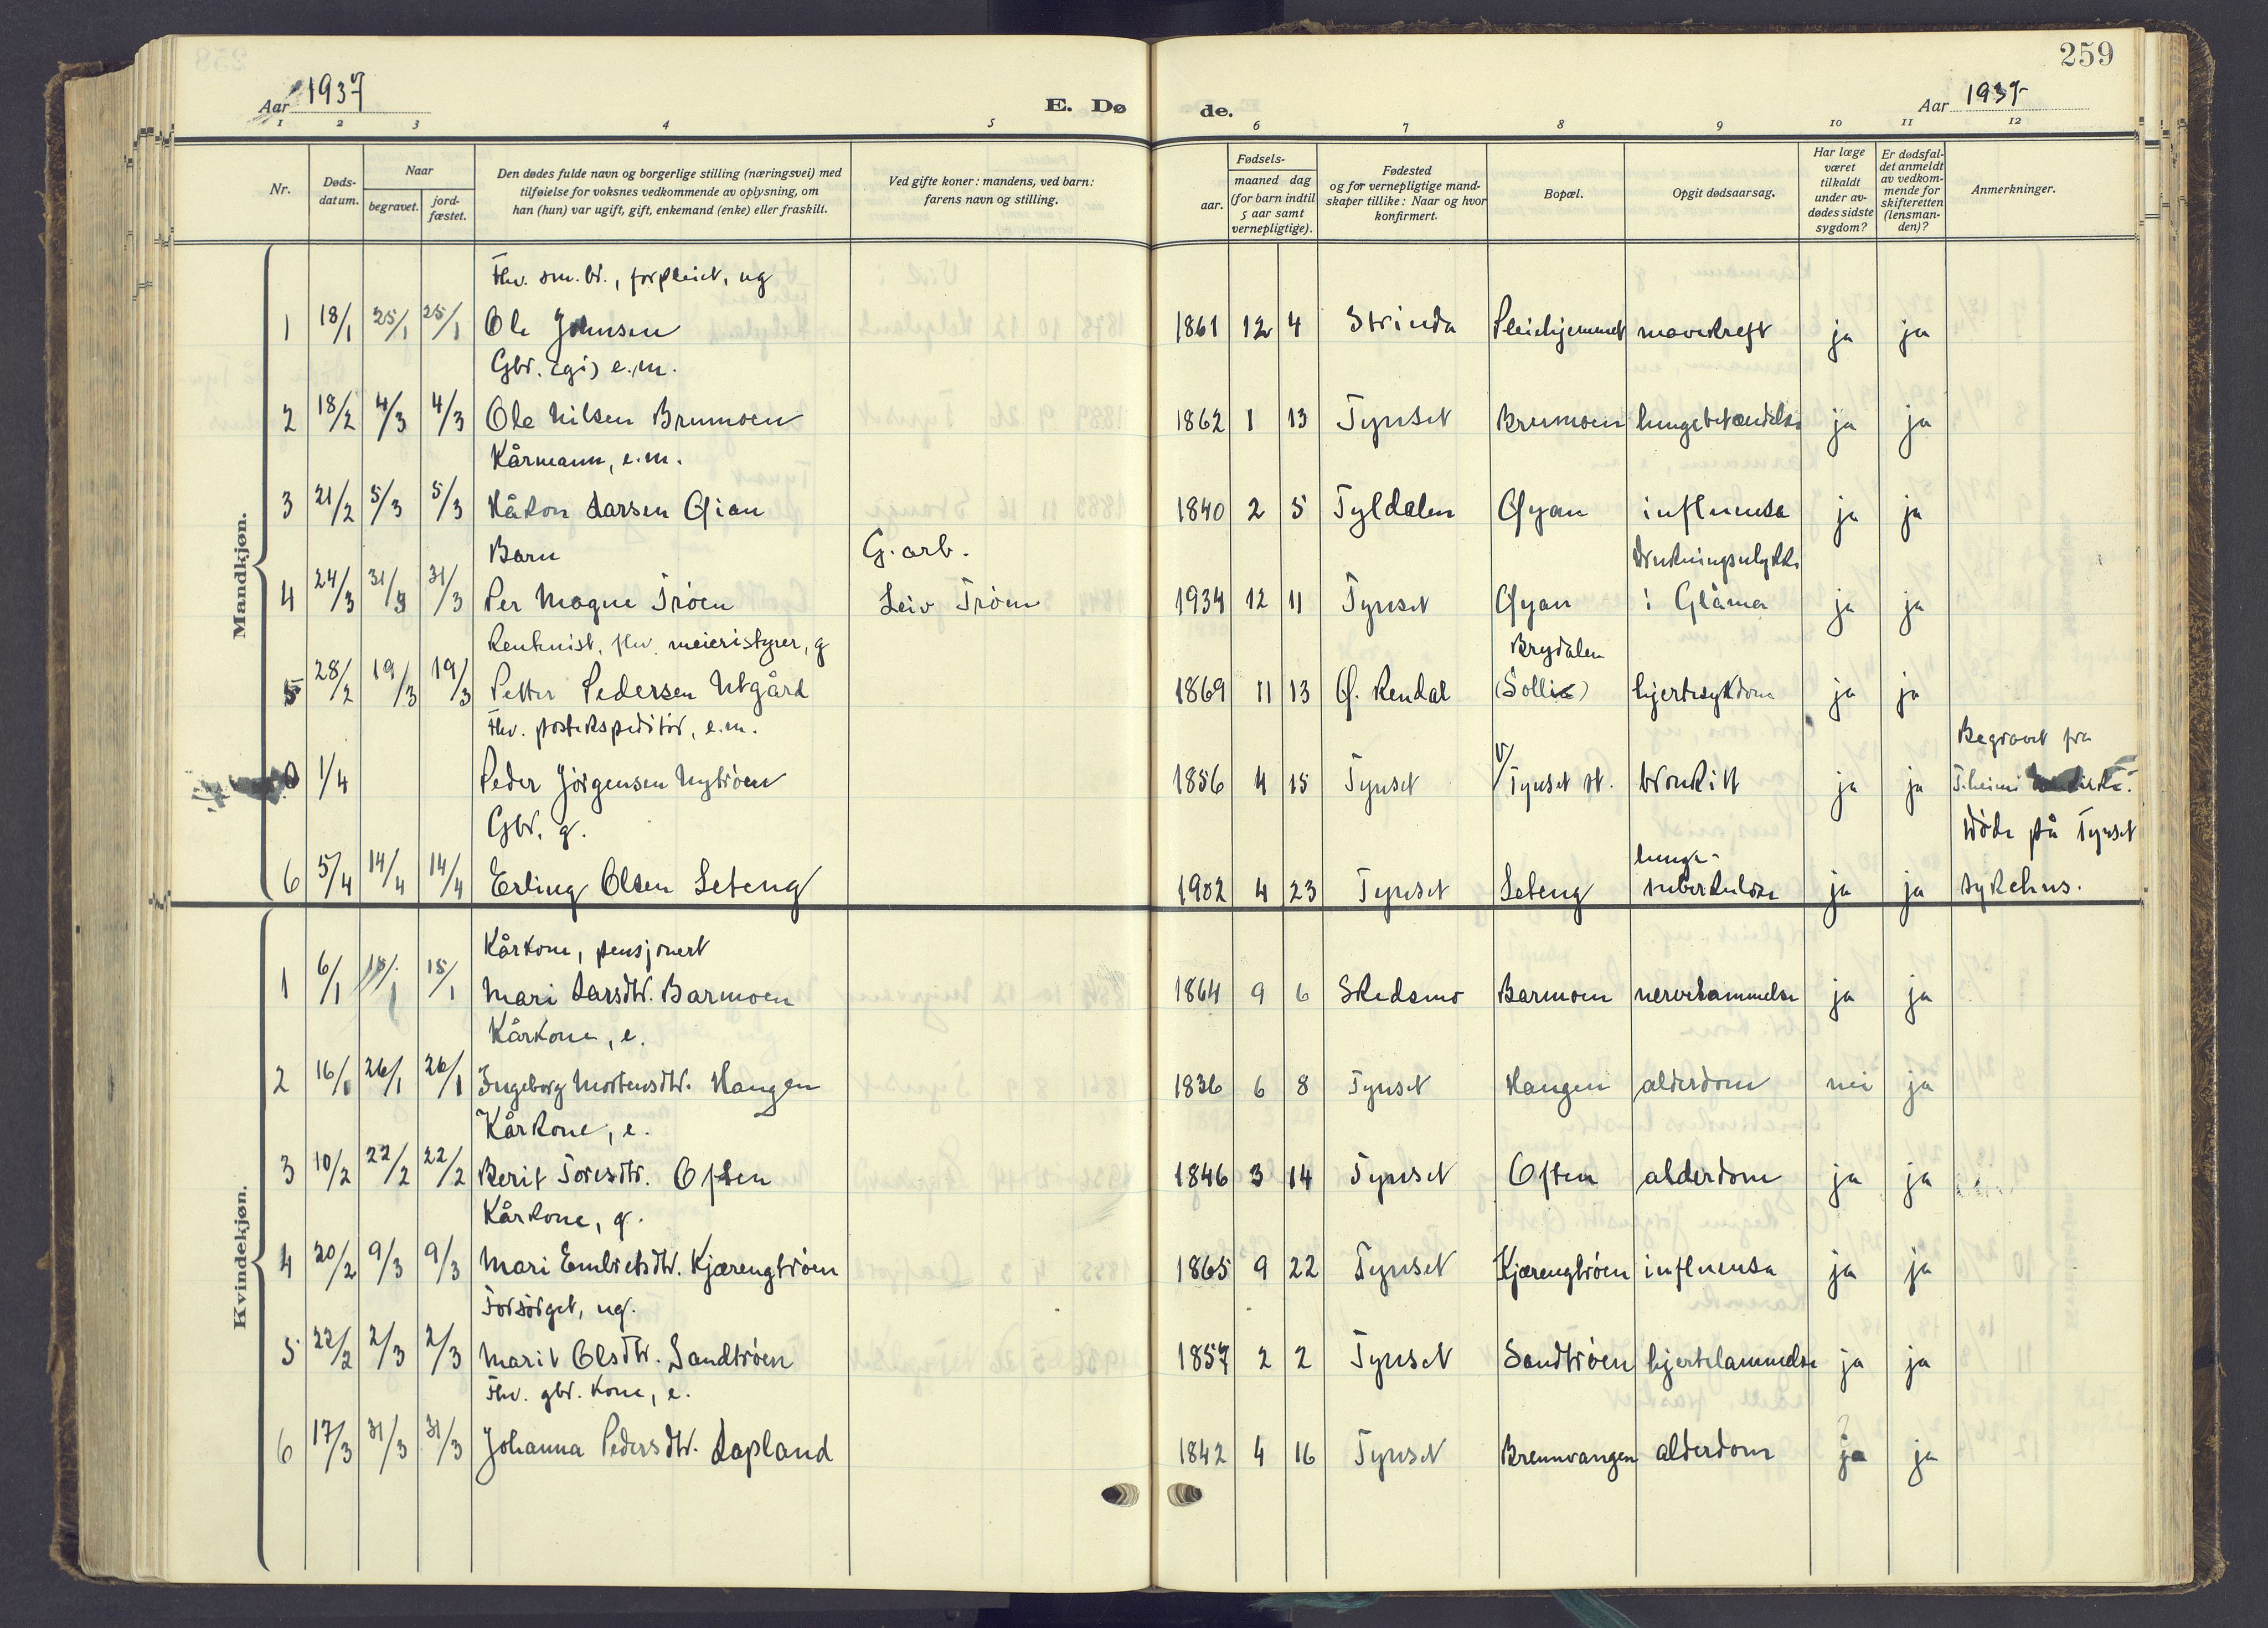 259
Aar 1937
E. Dø
de.
Aar 1937
1 2 3 4 5 6 7 8 9 10 11 12
Nr.
Døds-
datum.
Naar
begravet.
jord-
fæstet.
Den dødes fulde navn og borgerlige stilling (næringsvei) med
tilføielse for voksnes vedkommende av oplysning, om
han (hun) var ugift, gift, enkemand (enke) eller fraskilt.
Ved gifte koner: mandens, ved barn:
farens navn og stilling.
Fødsels-
aar.
maaned dag
(for barn indtil
5 aar samt
vernepligtige).
Fødested
og for vernepligtige mand-
skaper tillike: Naar og hvor
konfirmert.
Bopæl.
Opgit dødsaarsag.
Har læge
været
tilkaldt
under av-
dødes sidste
sygdom?
Er dødsfal-
det anmeldt
av vedkom-
mende for
skifteretten
(lensman-
den)?
Anmerkninger.
Mandkjøn.
Fhv. sm.br., forpleiet, ug
1 18/1 25/1 25/1 Ole Johnsen 1861 12 4 Strinda Pleiehjemmet mavekreft ja ja
Gbr. (gi) e.m.
2 18/2 4/3 4/3 Ole Nilsen Brumoen 1862 1 13 Tynset Brumoen lungebetændelse ja ja
Kårmann, e.m.
3 21/2 5/3 5/3 Håkon Larsen Øian 1840 2 5 Tyldalen Øyan influensa ja ja
Barn G. arb. drukningsulykke
4 24/3 31/3 31/3 Per Magne Trøen Leiv Trøen 1934 12 11 Tynset Øyan i Glåma ja ja
Rentenist, fhv. meieristyrer, g Brydalen
5 28/2 19/3 19/3 Petter Pedersen Utgård 1869 11 13 Ø. Rendal (Sollia) hjertesykdom ja ja
Fhv. postekspeditør, e.m. Begravet fra
1/4 Peder Jørgensen Nytrøen 1856 4 15 Tynset v/ Tynset st. bronkitt ja ja T.heim
Gbr. g. Døde på Tynset
6 5/4 14/4 14/4 Erling Olsen Leteng 1902 4 23 Tynset Leteng lunge-
tuberkulose ja ja sykehus.
Kvindekjøn.
Kårkone, pensjonert
1 6/1 15/1 15/1 Mari Larsdtr. Barmoen 1864 9 6 Skedsmo Barmoen nervelammelse ja ja
Kårkone, e.
2 16/1 26/1 26/1 Ingeborg Mortensdtr. Haugen 1836 6 8 Tynset Haugen alderdom nei ja
Kårkone, e.
3 10/2 22/2 22/2 Berit Toresdtr. Ofsten 1846 3 14 Tynset Often alderdom ja ja
Kårkone, g.
4 20/2 9/3 9/3 Mari Embretsdtr. Kjærengtrøen 1865 9 22 Tynset Kjærengtrøen influensa ja ja
Forsørget, ug.
5 22/2 2/3 2/3 Marit Olsdtr. Sandtrøen 1857 2 2 Tynset Sandtrøen hjertelammelse ja ja
Fhv. gbr. kone, e.
6 17/3 31/3 31/3 Johanna Pedersdtr. Lapland 1842 4 16 Tynset Brennvangen alderdom ja ja